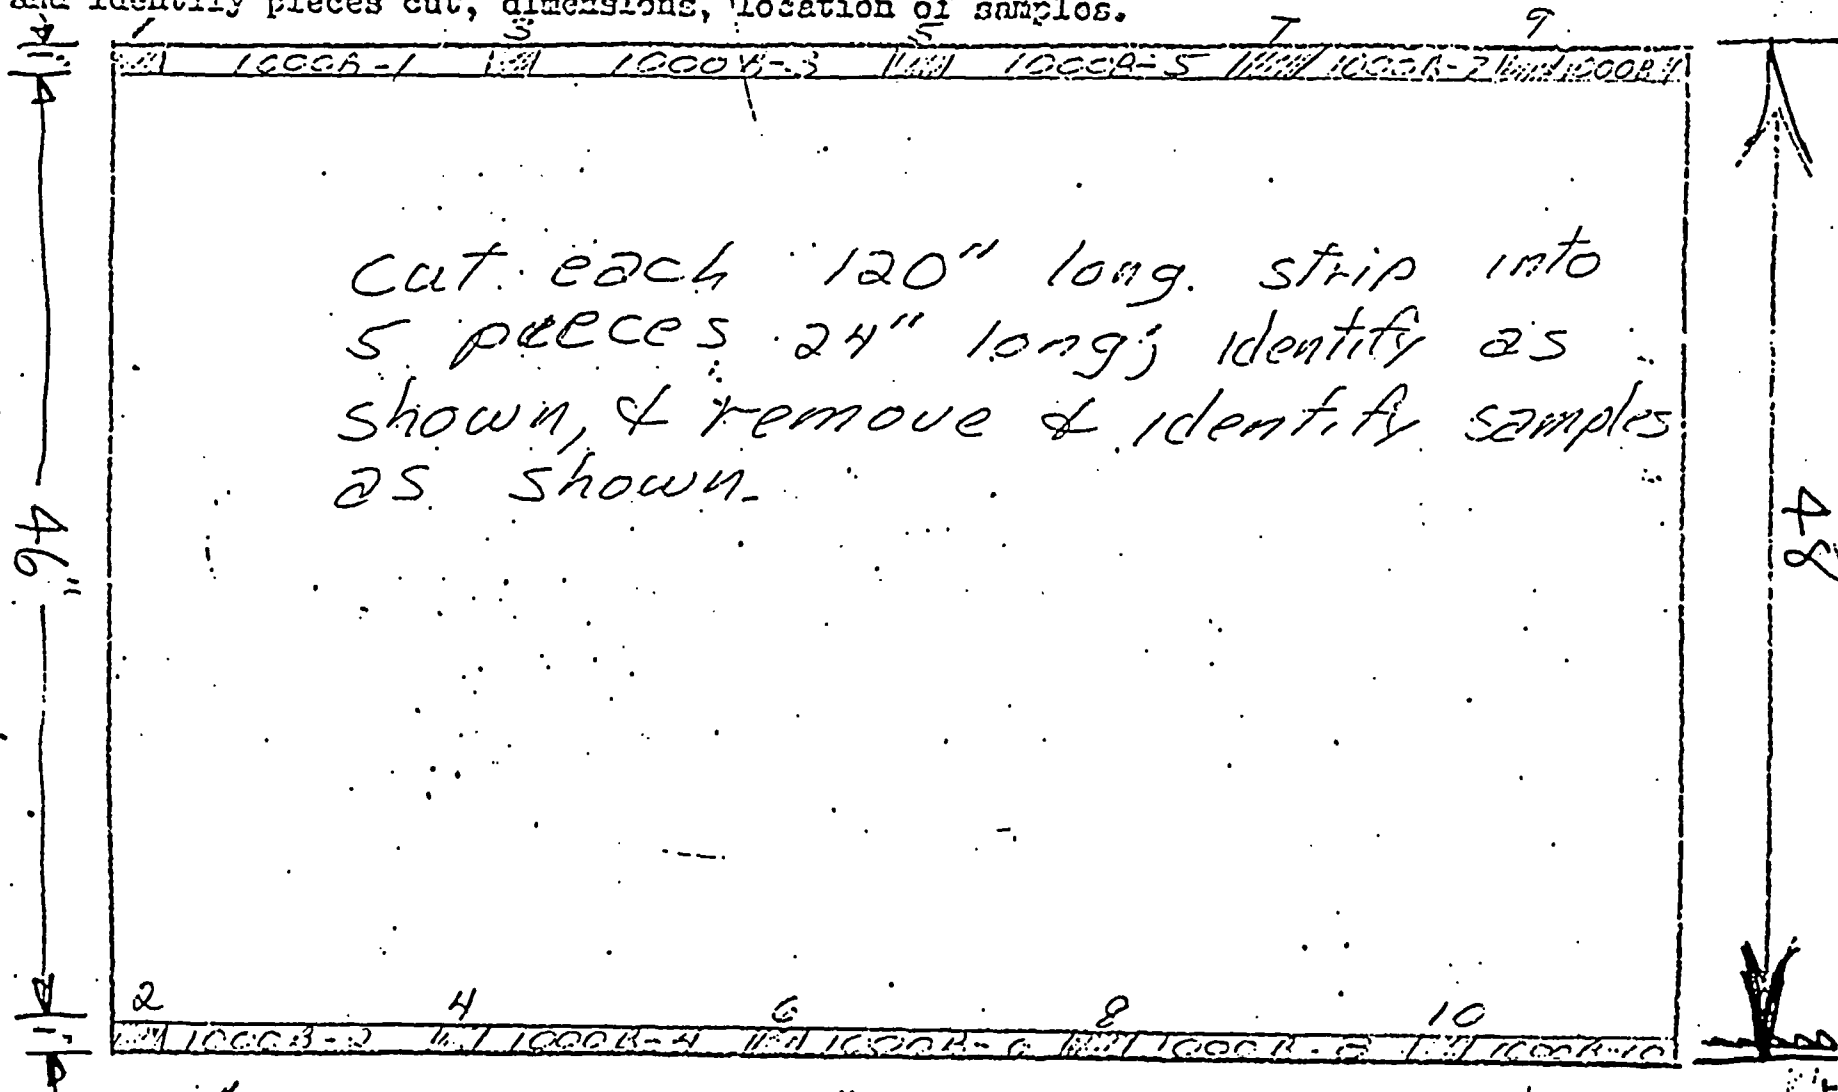 and identify pieces cut, dimensions, location of samples.
1 3 5 7 9
1" 1000B-1 1000B-3 1000B-5 1000B-7 1000B-9
cut each 120" long strip into
5 pieces 24" long; identify as
shown, & remove & identify samples
as shown.
46"
48
2 4 6 8 10
1" 1000B-2 1000B-4 1000B-6 1000B-8 1000B-10